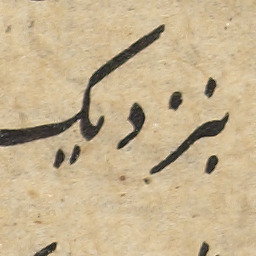 بنزدیک